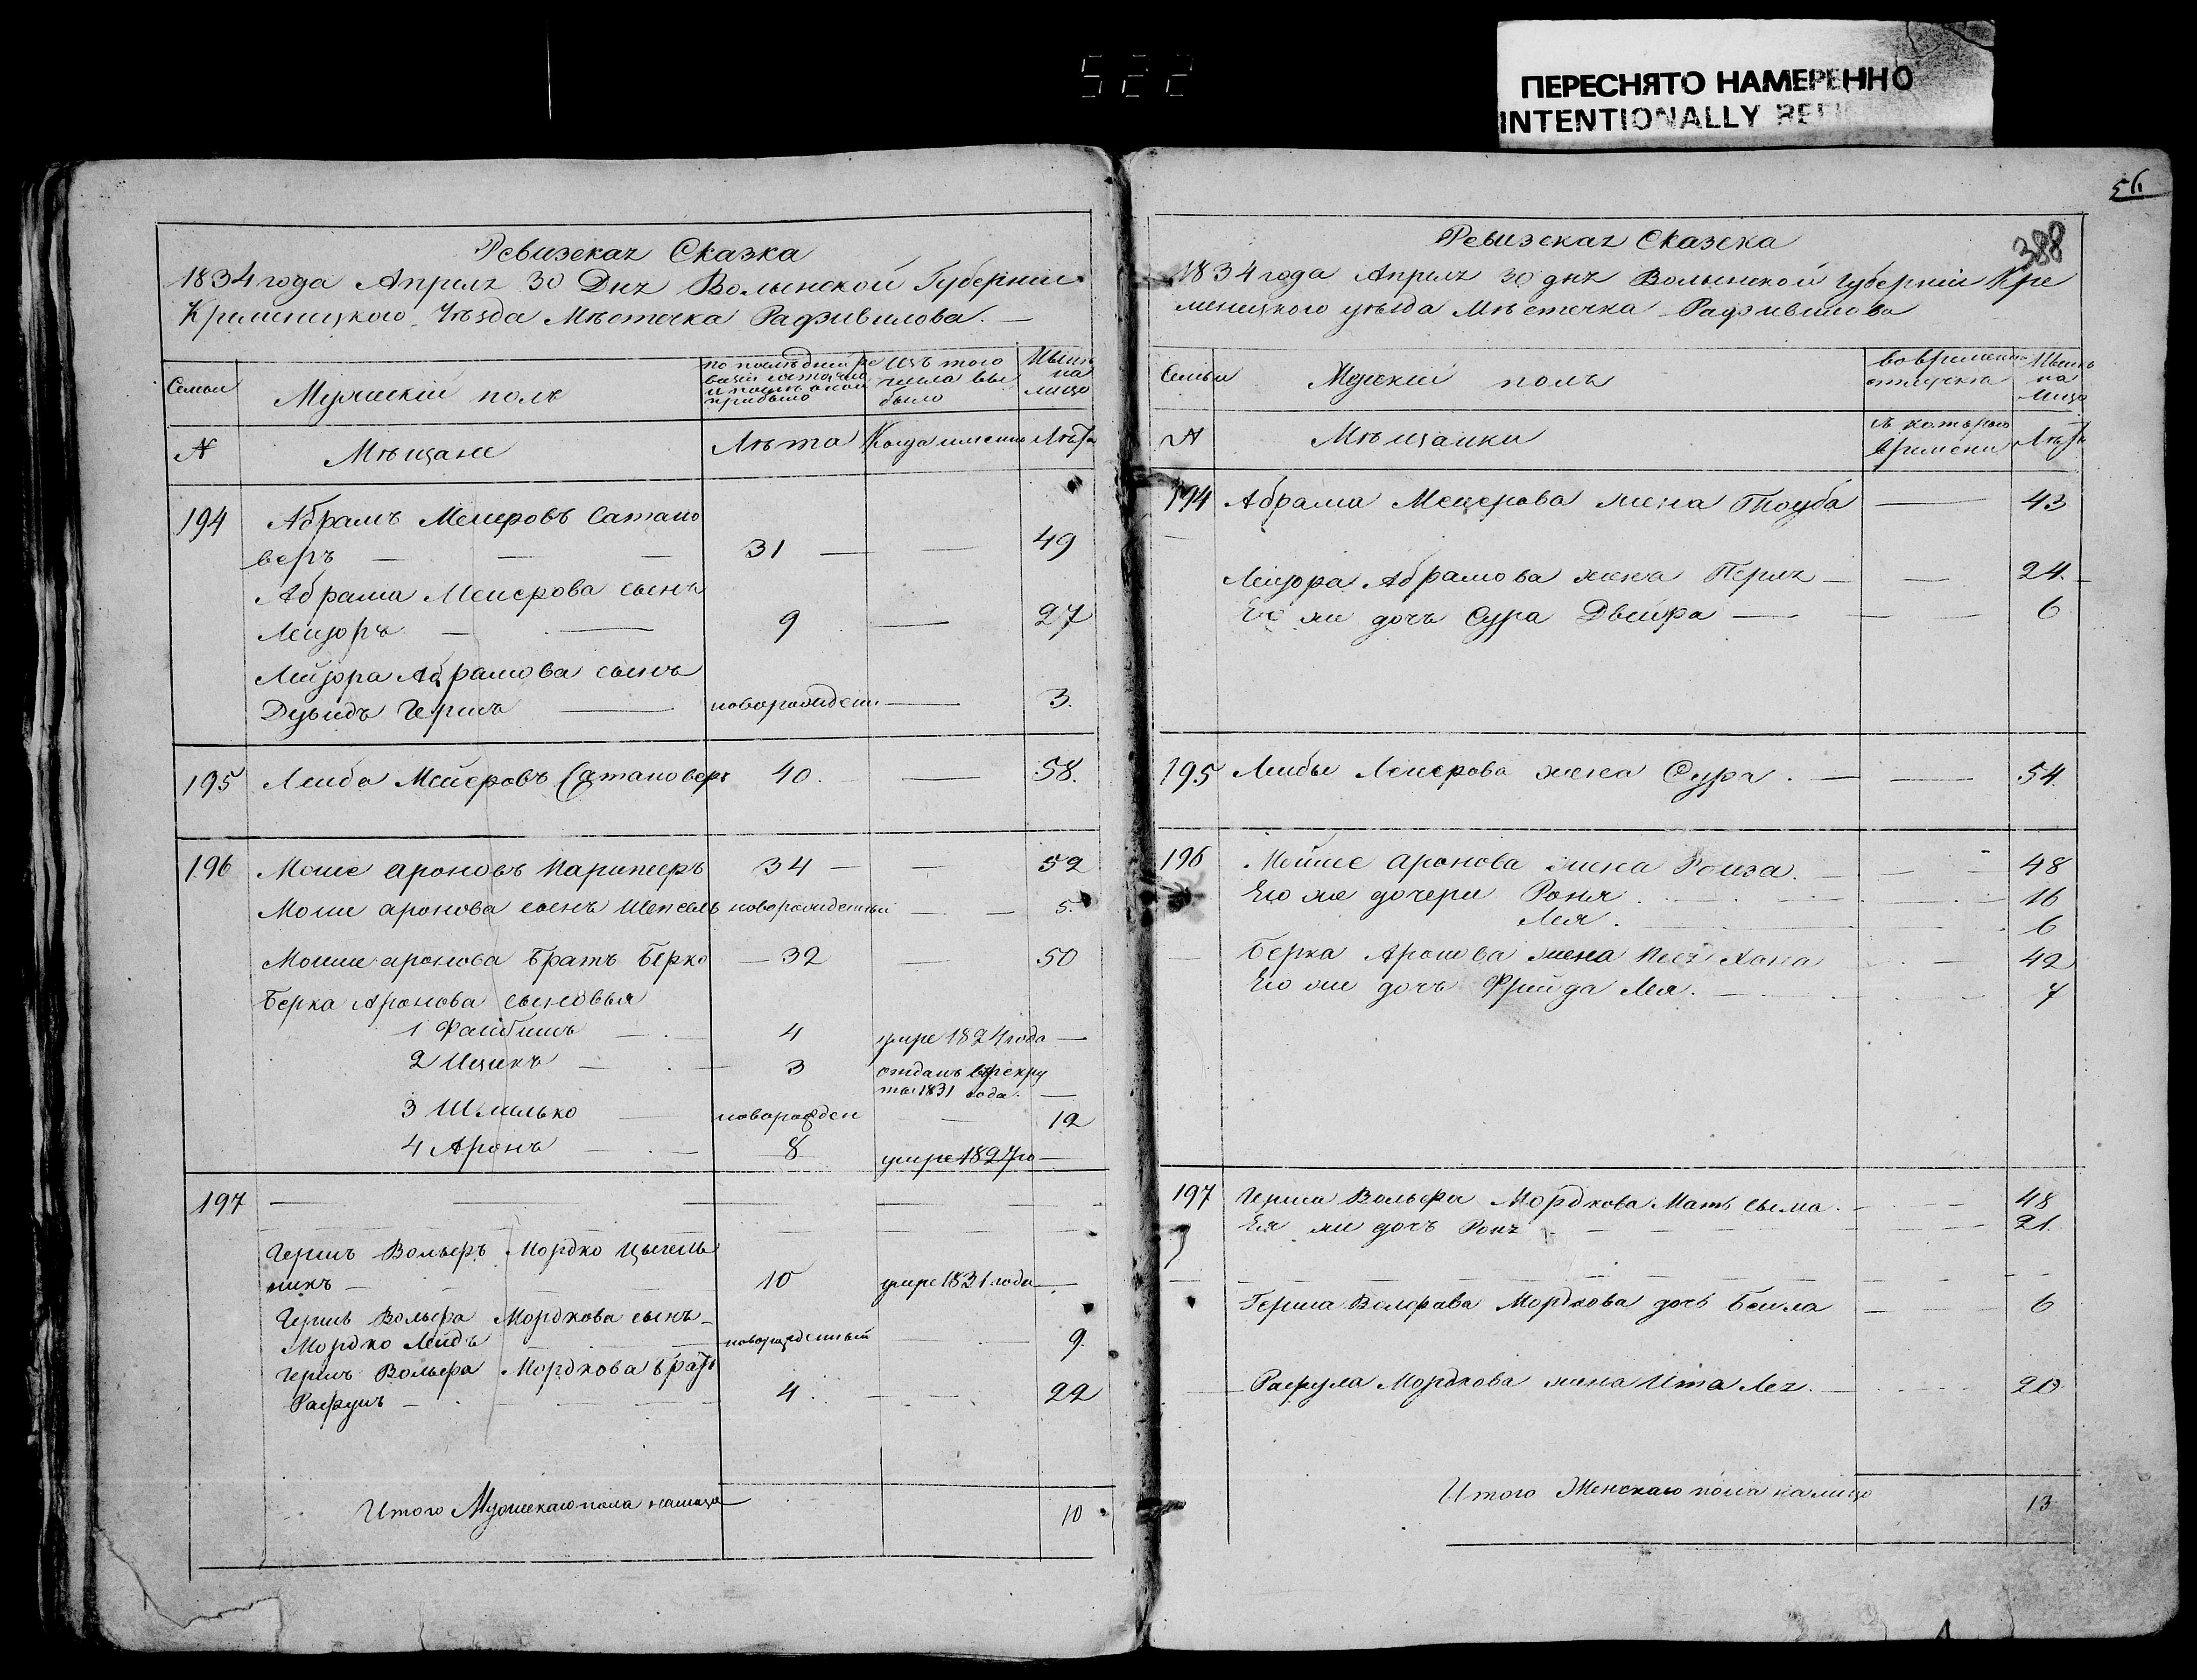 522
ПЕРЕСНЯТО НАМЕРЕННО
INTENTIONALLY
Ревизская Сказка
1834 года Апреля 30 Дня Волынской Губернии
Кременицкого Уѣзда Мѣстечка Радзивилова.
Семьи
Мужескій полъ
по послѣдней ре
визіи состояло
и послѣ оной
прибыло
Изъ того
числа вы
было
Нынѣ
на
лицо
№
Мѣщане
Лѣта
Когда именно
Лѣта
194
Абрамъ Мееровъ Сатано
веръ — — — 31 — — 49
Абрама Меерова сынъ
Лейзоръ — — 9 — 27
Лейзора Абрамова сынъ
Дувидъ Гершъ — новорожден — 3.
195 Лейба Мееровъ Сатановеръ 40. — 58.
196 Моше Ароновъ 34 — — 52
Моше Аронова сынъ новорожденный — — 5.
Моше Аронова братъ Берко — 32 — 50
Берка Аронова сыновья
1 Файбишъ — 4 умре 1824 года —
2 Ицикъ — 3 отданъ в рекру
ты 1831 года. —
3 Шмилько — новорожден — 12
4 Аронъ — 8 умре 1827 го —
197
Гершъ Вольфъ Мордко
никъ — 10 умре 1831 года —
Гершъ Вольфа Мордкова сынъ
Мордко Лейбъ новорожденный — 9.
Гершъ Вольфа Мордкова братъ
Рафулъ — 4. — — 22
Итого Мужескаго пола налицо
10
56
388
Ревизская Сказка
1834 года Апреля 30 дня Волынской Губерніи Кре
меницкого уѣзда Мѣстечка Радзивилова
Семьи
полъ
во временной
отлучкѣ
Нынѣ
на
лицо
№
Мѣщанки
съ котораго
времени
Лѣта
194 Абрама Меерова жена Тоуба — 43
Лейзора Абрамова жена Перля — — 24.
Его же дочь Сура Двейра — — — 6
195 Лейбы Меерова жена Сура. — — 54.
196 Мойше Аронова жена Ройза. — — 48
Его же дочери Роня. 16
Лея. 6
Берка Аронова жена Хана — 42
Его же дочь Фрейда Лея. — 7
197 Герша Вольфа Мордкова Мать Сыма. — 48
Ея же дочь Роня — 21.
Герша Вольфа Мордкова дочь Бейла — — 6
Рафула Мордкова жена Ита Лея. — 20
Итого Женскаго пола налицо
13